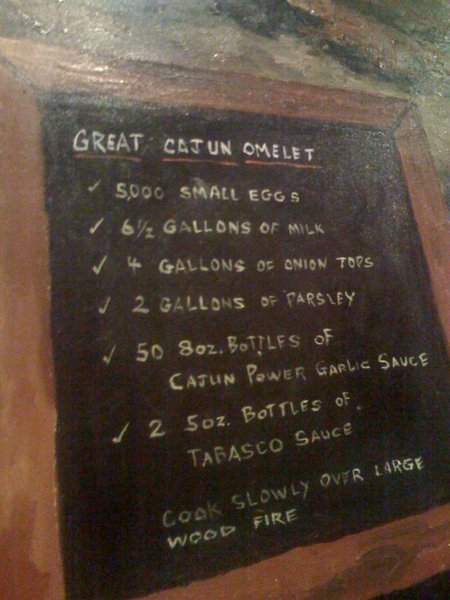 GREAT CAJUN OMELET
✓ 5,000 SMALL EGGS
✓ 6 1/2 GALLONS OF MILK
✓ 4 GALLONS OF ONION TOPS
✓ 2 GALLONS OF PARSLEY
✓ 50 8oz. BOTTLES OF
CAJUN POWER GARLIC SAUCE
✓ 2 5oz. BOTTLES OF.
TABASCO SAUCE
COOK SLOWLY OVER LARGE
WOOD FIRE